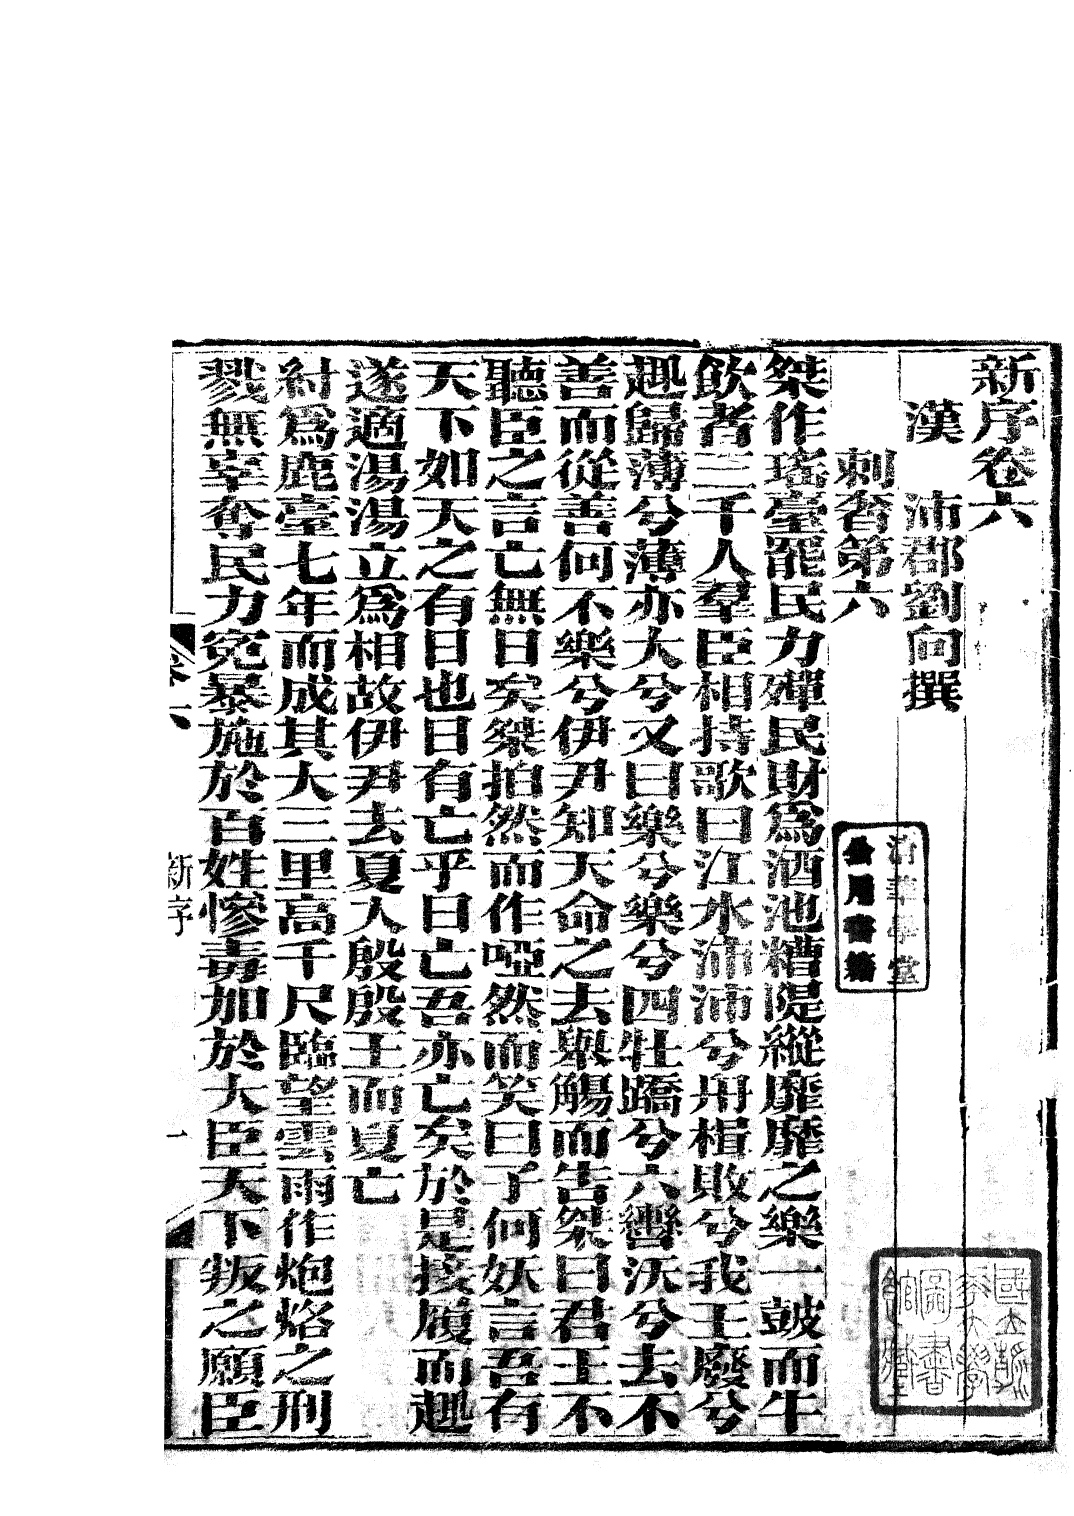 新序卷六
漢　沛郡劉向撰
刺奢第六
桀作瑤臺罷民力殫民財爲酒池糟隄縱靡靡之樂一鼓而牛
飲者三千人羣臣相持歌曰江水沛沛兮舟楫敗兮我王廢兮
趣歸薄兮薄亦大兮又曰樂兮樂兮四牡蹻兮六轡沃兮去不
善而從善何不樂兮伊尹知天命之去舉觴而告桀曰君王不
聽臣之言亡無日矣桀拍然而作啞然而笑曰子何妖言吾有
天下如天之有日也日有亡乎日亡吾亦亡矣於是接履而趣
遂適湯湯立爲相故伊尹去夏入殷殷王而夏亡
紂爲鹿臺七年而成其大三里高千尺臨望雲雨作炮烙之刑
戮無辜奪民力寃暴施於百姓慘毒加於大臣天下叛之願臣
卷六
新序
一
清華學堂
公用書籍
國立清華大學圖書館藏